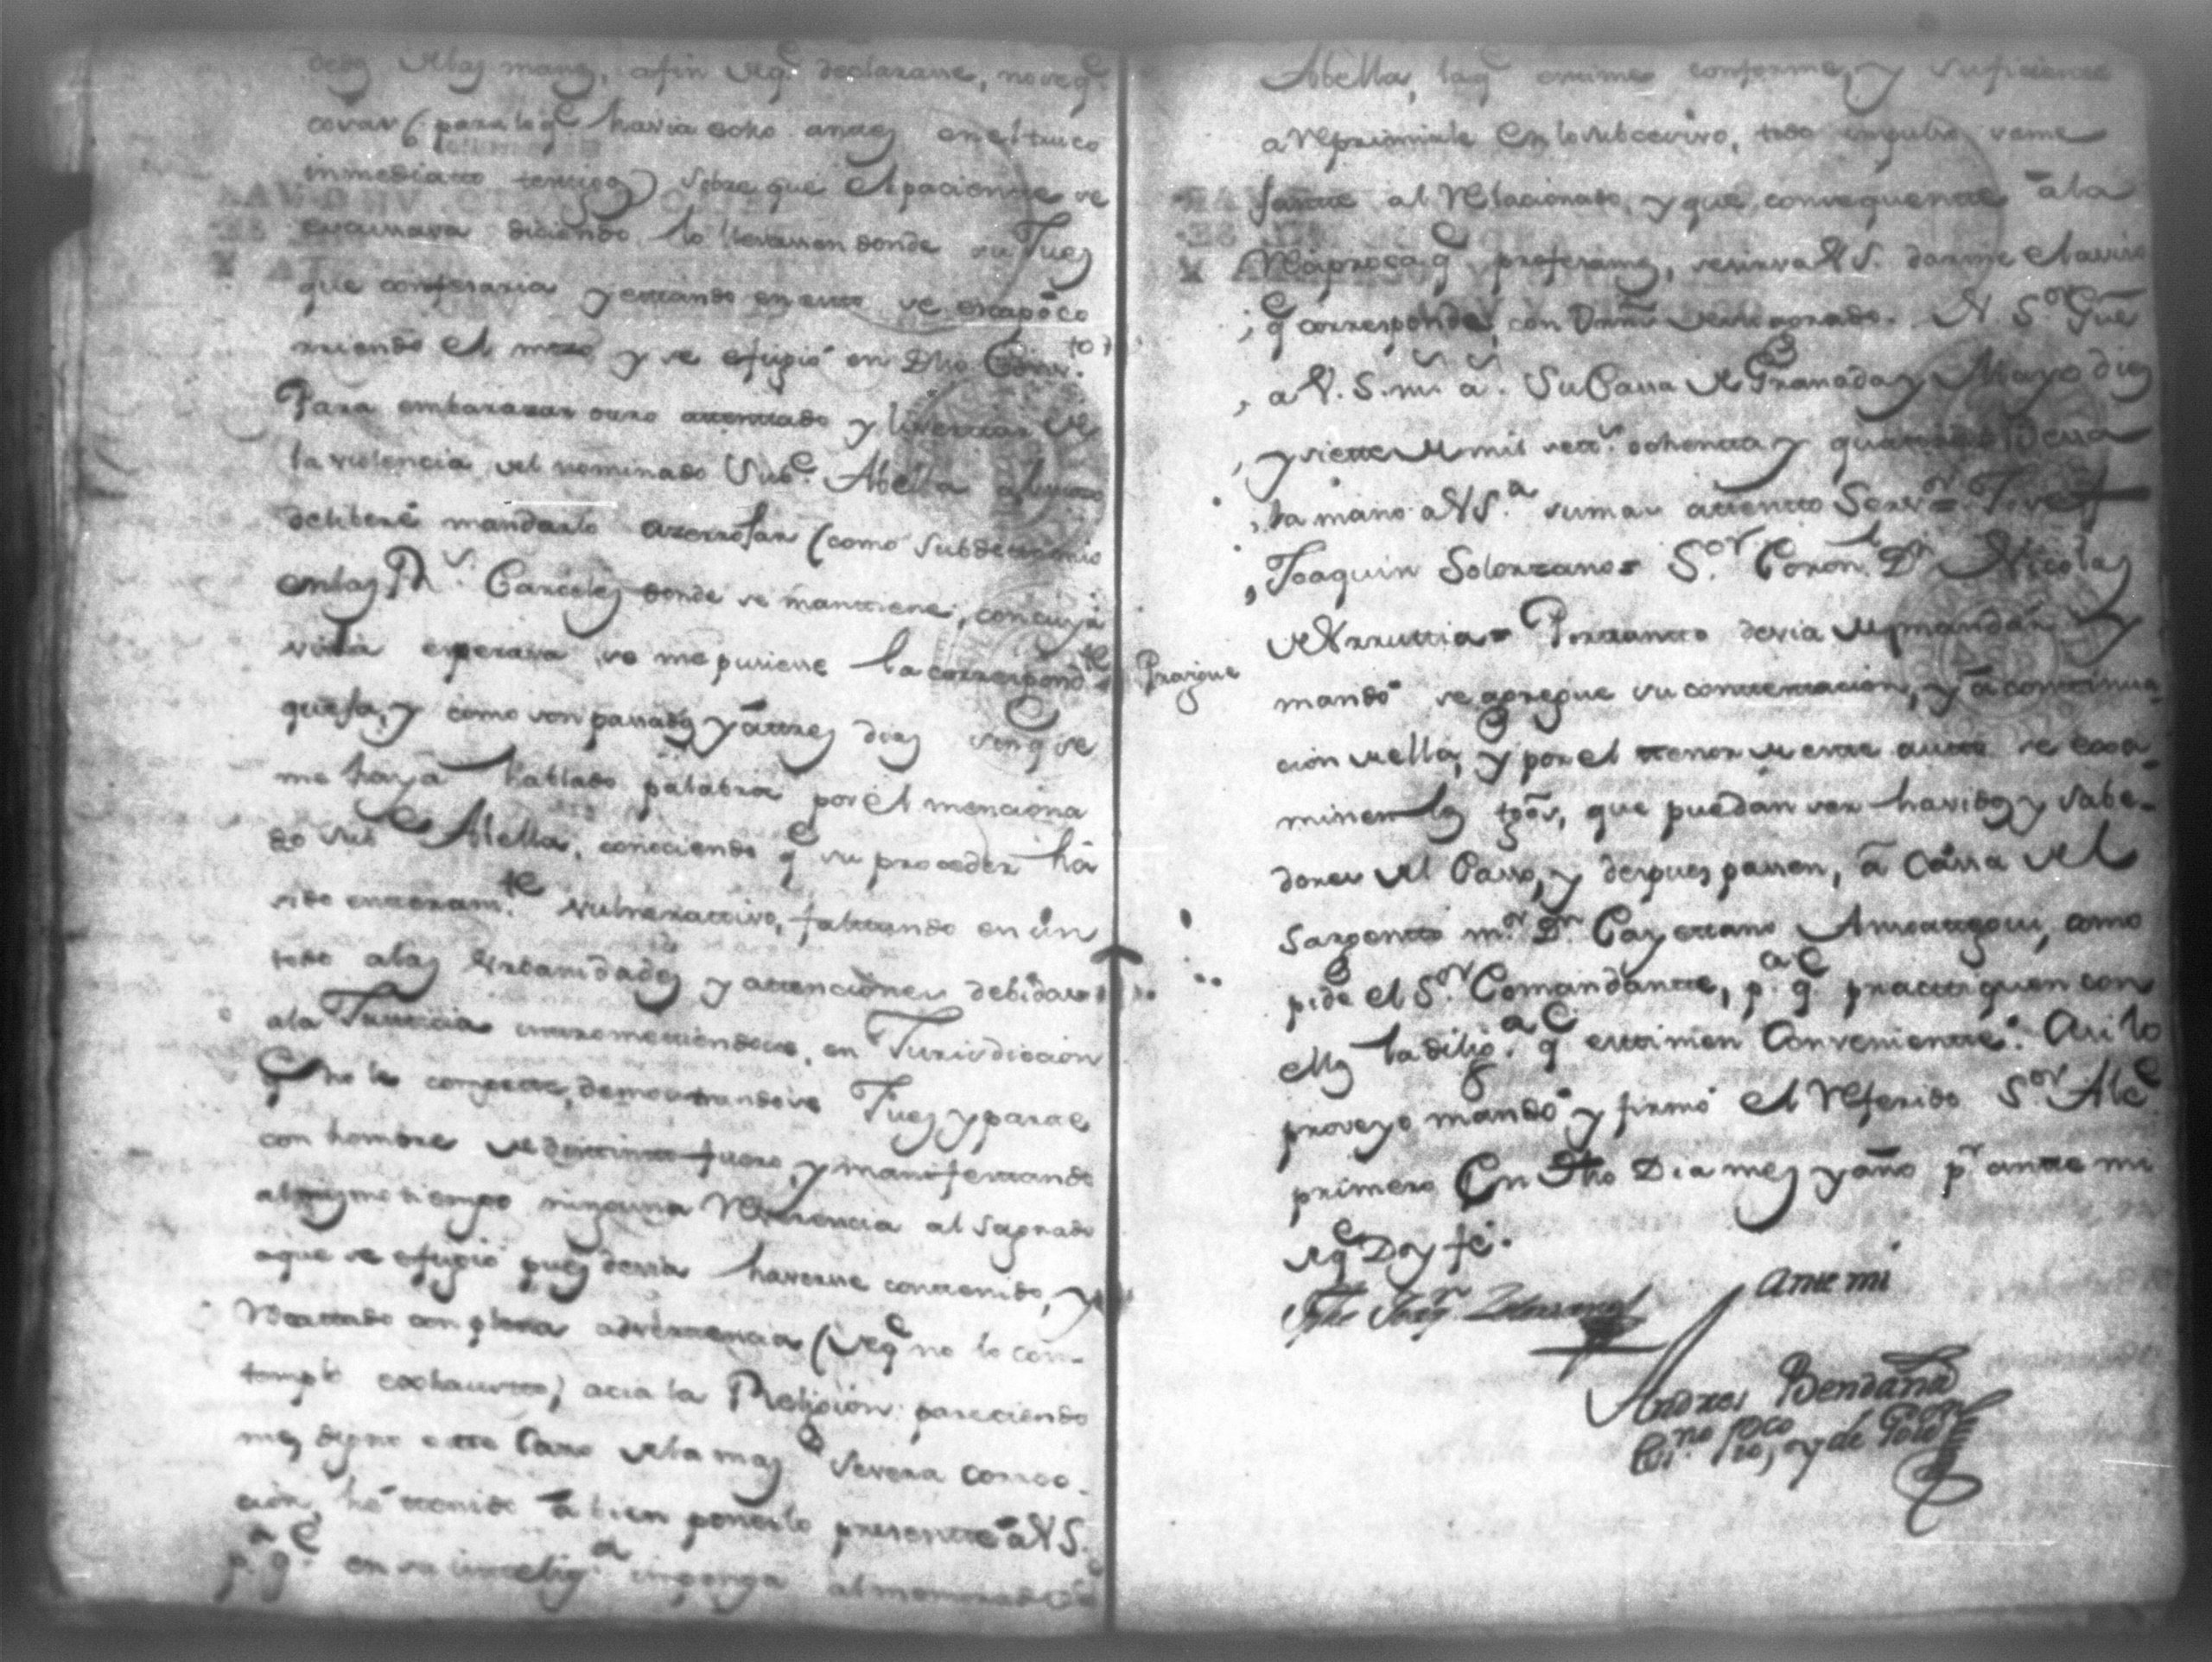 dedos de las manos, afin de q.e declarasse, no se q.e
cosas (para lo q.e havia ocho andes en el truco
inmediato testigos) sobre que el paciente se
escussava diciendo lo llevassen donde su Juez
que confesaria y estando en esto se escapó co
rriendo el mozo y se efugió en Dho Conv.to
Para embarazar otro attentado y livertar de
la violencia del nominado Sub.e Abella
deliberé mandarlo arrestar (como Subdetenido
en las R.s Carceles donde se manttiene, con cuya
vista esperava se me pusiesse la correspond.te
quexa, y como son passados ya tres dias sin q.e se
me haya hablado palabra por el menciona
do Sub.e Abella, conociendo q.e su proceder há
sido enteram.te vulnerattivo, faltando en ún
todo a las Urbanidades y attenciones debidas
a la Justicia entrometiendose, en Jurisdiccion
q.e no le compette, demostrandose Juez y parte
con hombre de distinto fuero, y manifestando
al mismo tiempo ninguna Reverencia al Sagrado
a que se efugió pues devia haverse contenido, y
tratado con advertencia (de q.e no lo con-
templo exhausto) acia la Religion: pareciendo
me digno este Caso de la mas severa correc-
cion, hé tenido á bien ponerlo presente a V S.
p.a q.e en su intelig.a imponga al memorado Sub.e
Abella, la q.e estime conforme, y suficiente
a Reprimirle En lo subcesivo, todo impulso seme
jante al Relacionado, y que consequente á la
Reciproca q.e profesamos, se sirva V S. darme el aviso
, q.e corresponde, con D.n N S.or Gue
, a V. S. m.s a.s Su Cassa de Granada y Mayo diez
, y siette de mil sett.s ochenta y quattro = Bessa
, la mano a V S.a su mas attento Serv.or = Josef
, Joaquin Solorzano = S.or Coron.l D.n Nicolas
de Urruttia = Porttantto devia de mandár y
Prosigue
mandó se agregue su conttestacion, y á continua-
cion de ella, y por el ttenor de este auto se exsa-
minen los tgos, que puedan ser havidos y sabe-
dores del Casso, y despues passen, á cassa del
Sargento m.or D.n Cayettano Ansoattegui, como
pide el S.or Comandante, p.a q.e practtiquen con
ellos la dilig.a q.e esttimen Conveniente: Asi lo
proveyo mandó y firmó el Referido S.or Alc.e
primero En Dho Dia mes y año p.r ante mi
de q.e Doy fé.
Jph Joaq.n Solorzano
Ante mi
Andres Bendaña
Es.no pco y de Gov